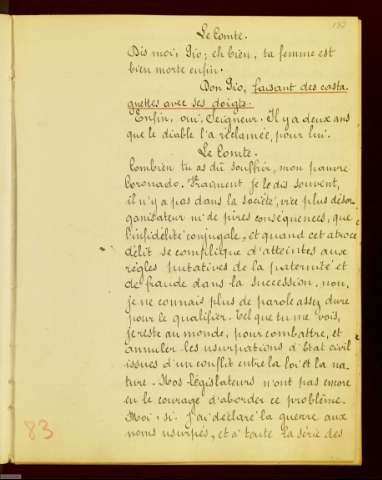 Le Comte.
Dis moi, Gio; eh bien, ta femme est
bien morte enfin.
Don Gio, faisant des casta
gnettes avec ses doigts.
Enfin, oui, Seigneur. Il y a deux ans
que le diable l'a réclamée, pour lui.
Le Comte.
Combien tu as dû souffrir, mon pauvre
Coronado. Fraqment je le dis souvent,
il n'y a pas dans la société, vice plus désor
ganisateur ni de pires conséquences, que
l'infidélité conjugale, et quand cet atroce
délit se complique d'atteintes aux
règles putatives de la paternité et
de fraude dans la succession, non,
je ne connais plus de parole assez dure
pour le qualifier. Tel que tu me vois,
je reste au monde, pour combattre, et
annuler les usurpations d'Etat civil
issues d'un conflit entre la loi et la na-
ture. Nos législateurs n'ont pas encore
eu le courage d'aborder ce problème.
Moi, si. J'ai déclaré la guerre aux
noms usurpés, et à toute la série des
83